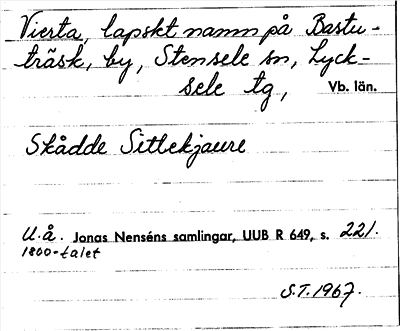 Vierta, lapskt namn på Bastu-
träsk, by, Stensele sn, Lyck-
sele tg, Vb. län.
Skådde Sittekjaure
U.å. Jonas Nenséns samlingar, UUB R 649, s. 221.
1800-talet
S.T. 1967.